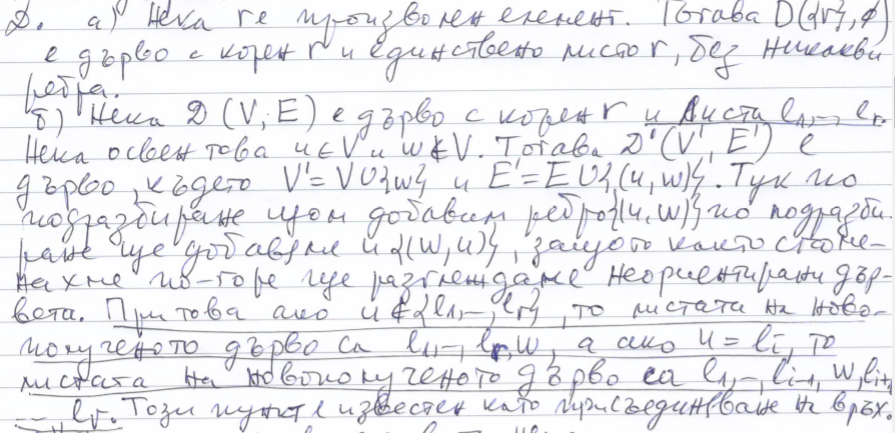 2. а) Нека r е произволен елемент. Тогава D({r}, ∅)
е дърво с корен r и единствено листо r, без никакви
ребра.
б) Нека D (V, E) е дърво с корен r и листа l1, ..., lr.
Нека освен това u ∈ V и w ∉ V. Тогава D'(V', E') е
дърво, където V' = V∪{w} и E' = E∪{(u, w)}. Тук по
подразбиране щом добавим ребро {(u, w)} по подразби-
ране ще добавяме и {(w, u)}, защото както споме-
нахме по-горе ще разглеждаме неориентирани дър-
вета. При това ако u ∉ {l1, ..., lr}, то листата на ново-
полученото дърво са l1, ..., lr, w, а ако u = li, то
листата на новополученото дърво са l1, ..., li-1, w, li+1,
..., lr. Този пункт е известен като присъединяване на връх.